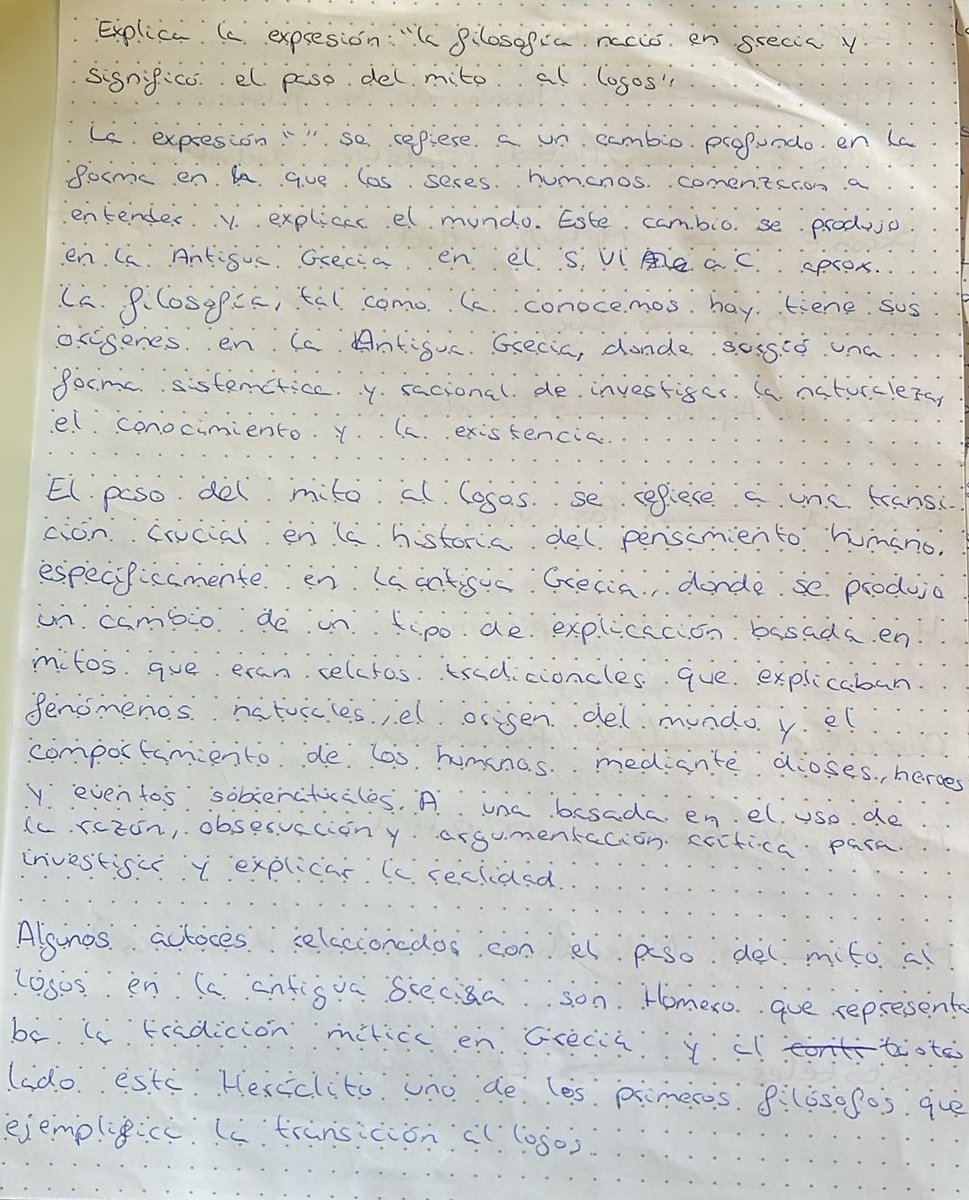 Explica la expresión: "la filosofía nació en grecia y
significó el paso del mito al logos".
La expresión " " se refiere a un cambio profundo en la
forma en la que los seres humanos comenzaron a
entender y explicar el mundo. Este cambio se produjo
en la Antigua Grecia en el S. VI a C aprox.
La filosofía, tal como la conocemos hoy tiene sus
orígenes en la Antigua Grecia, donde surgió una
forma sistemática y racional de investigar la naturaleza,
el conocimiento y la existencia.
El paso del mito al logos se refiere a una transi-
ción crucial en la historia del pensamiento humano,
específicamente en la antigua Grecia, donde se produjo
un cambio de un tipo de explicación basada en
mitos que eran relatos tradicionales que explicaban
fenómenos naturales, el origen del mundo y el
comportamiento de los humanos mediante dioses, heroes
y eventos sobrenaturales. A una basada en el uso de
la razón, observación y argumentación crítica para
investigar y explicar la realidad.
Algunos autores relacionados con el paso del mito al
logos en la antigua Grecia son Homero que representa
ba la tradición mítica en Grecia y al otro
lado esta Heráclito uno de los primeros filósofos que
ejemplifica la transición al logos.